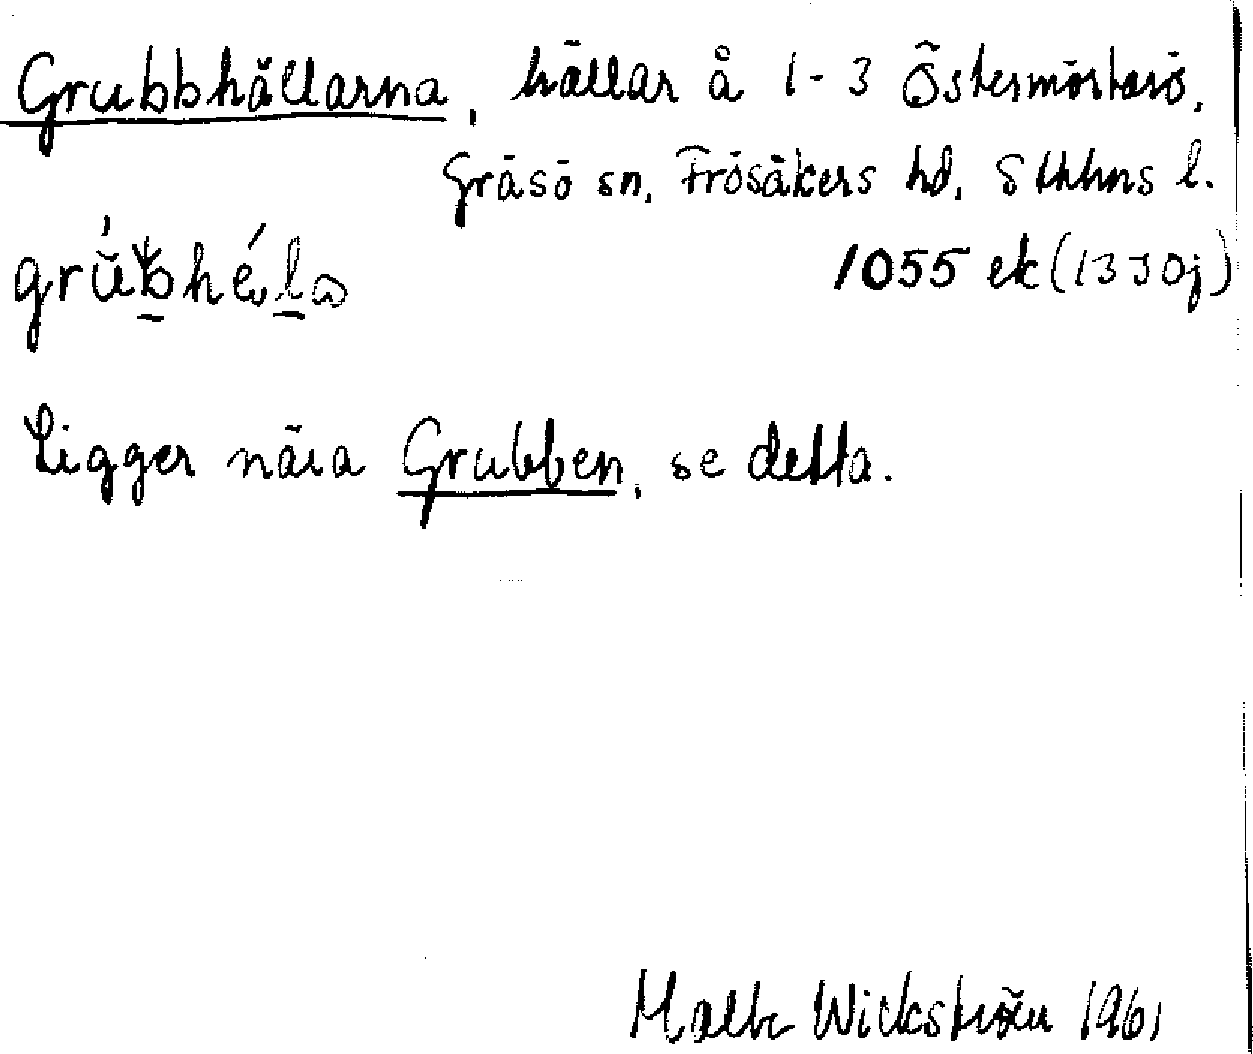 Grubbhällarna, hällar å 1-3 Östermörtarö,
Gräsö sn, Frösåkers hd, Sthlms l.
1055 ek (13J0j)
Ligger nära Grubben, se detta.
Wickström 1961